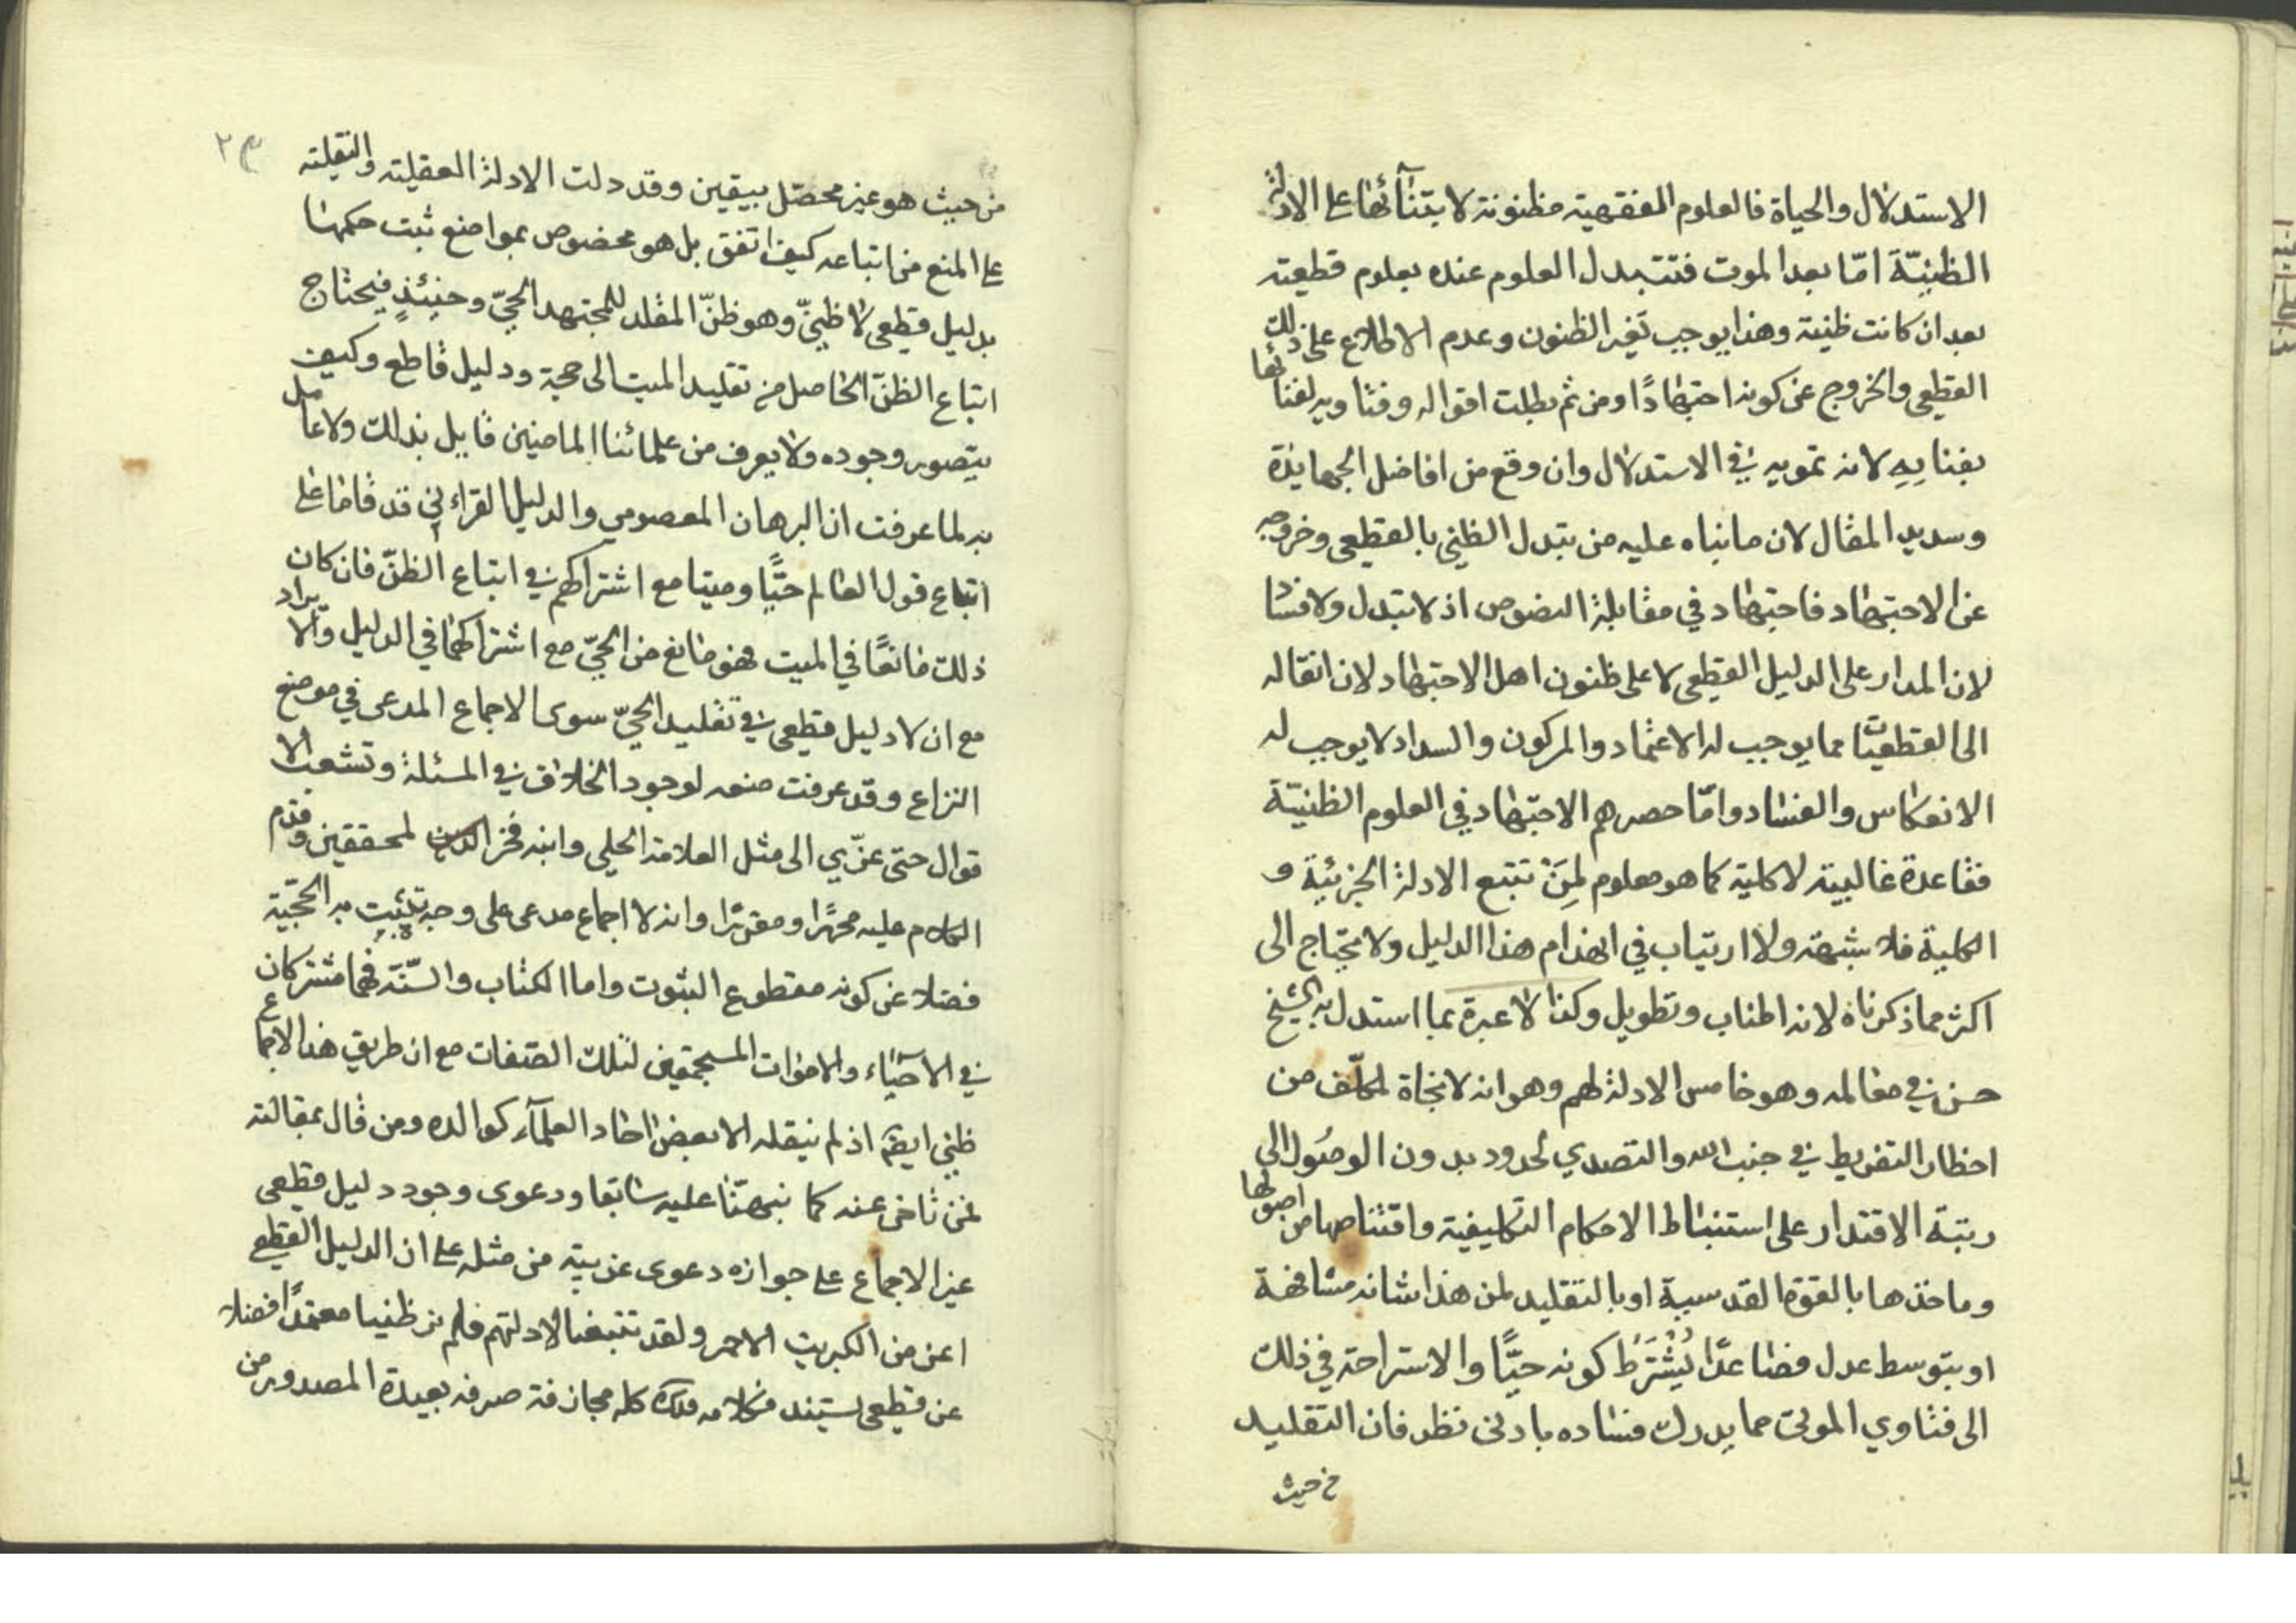 الاستدلال والحياة فالعلوم الفقهية مظنونة لابتنآئها على الادلة
الظنيّة امّا بعد الموت فتتبدل العلوم عنده بعلوم قطعية
بعد ان كانت ظنية وهذا يوجب تغير الظنون وعدم الاطلاع على ذلك
القطعي والخروج عن كونه اجتهادًا ومن ثم بطلت اقواله وفتاويه لفنائها
بفنايِهِ لانه تمويه في الاستدلال وان وقع من افاضل الجهابذة
وسديد المقال لان ما بناه عليه من تبدل الظني بالقطعي وخروجه
عن الاجتهاد فاجتهاد في مقابلة النصوص اذ لا تبدل ولا فسا
لان المدار على الدليل القطعي لا على ظنون اهل الاجتهاد لان انتقاله
الى القطعيّات مما يوجب له الاعتماد والركون والسداد لا يوجب له
الانعكاس والفساد وامّا حصرهم الاجتهاد في العلوم الظنيّة
فقاعدة غالبية لا كلية كما هو معلوم لِمَنْ تتبع الادلة الجزئية و
الكلية فلا شبهة ولا ارتياب في انهدام هذا الدليل ولا يحتاج الى
اكثر مما ذكرناه لانه اطناب وتطويل وكذا لا عبرة بما استدل به الشيخ
حسن في معالمه وهو خامس الادلة لهم وهو انه لا نجاة لمكلّف من
اخطار التفريط في جنب الله والتصدي لحدود بدون الوصُول الى
رتبة الاقتدار على استنباط الاحكام التكليفية واقتناصها من اصولها
وماخذها بالقوة القدسية او بالتقليد لمن هذا شانه مشافهة
او بتوسط عدل فصاعدًا يُشْتَرَط كونه حيًّا والاستراحة في ذلك
الى فتاوي الموتى مما يدرك فساده بادنى نظر فان التقليد
من حيث
٢٣
من حيث هو غير محصّل بيقين وقد دلت الادلة العقلية والنقلية
على المنع من اتباعه كيف اتفق بل هو مخصوص بمواضع ثبت حكمها
بدليل قطعي لا ظنيّ وهو ظنّ المقلد للمجتهد الحيّ وحينئذٍ فيحتاج
اتباع الظنّ الحاصل من تقليد الميت الى حجة ودليل قاطع وكيف
يتصور وجوده ولا يعرف من علمائنا الماضين قايل بذلك ولا عامل
به لما عرفت ان البرهان المعصومي والدليل القراءني قد قاما على
اتباع قول العالم حيًّا وميتا مع اشتراكهم في اتباع الظنّ فان كان
ذلك مانعًا في الميت فهو مانع من الحيّ مع اشتراكهما في الدليل والايراد
مع ان لا دليل قطعي في تقليد الحيّ سوى الاجماع المدعى في موضع
النزاع وقد عرفت منعه لوجود الخلاف في المسئلة وتشعب الا
قوال حتى عزّي الى مثل العلامة الحلي وابنه فخر المحققين وقدم
الكلام عليه محررًا ومقررًا وانه لا اجماع مدعى على وجه تثبت به الحجّية
فضلا عن كونه مقطوع الثبوت واما الكتاب والسّنّة فهما مشتركان
في الاحيآء والاموات المستجمعين لتلك الصفات مع ان طريق هذا الاجماع
ظني ايضًا اذ لم ينقله الا بعض احاد العلمآء كوالده ومن قال بمقالته
لمن تاخر عنه كما نبهّنا عليه سابقا ودعوى وجود دليل قطعي
غير الاجماع على جوازه دعوى غريبة من مثله على ان الدليل القطعي
اعز من الكبريت الاحمر ولقد تتبعنا لادلتهم فلم نر ظنيا معتمدًا فضلا
عن قطعي يستند فكلامه كله مجازفة صرفه بعيدة الصدور من